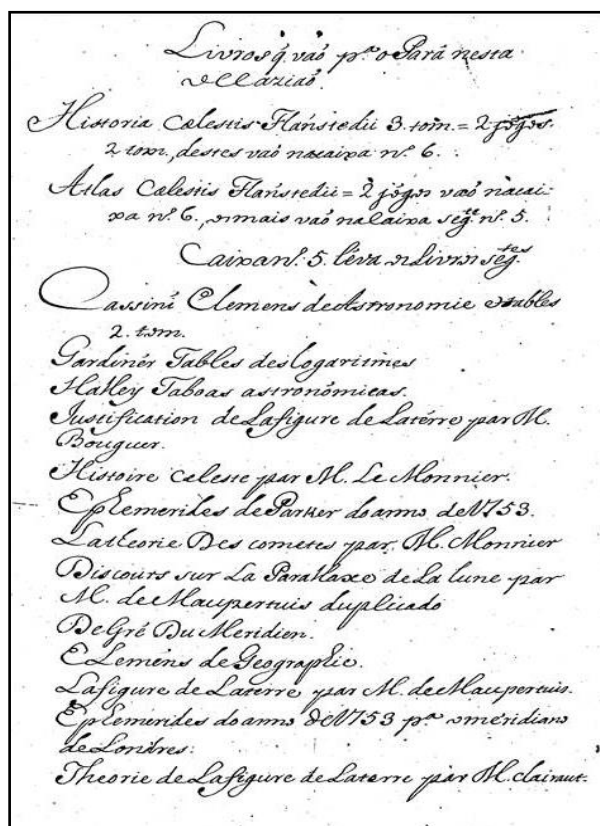 Livros q̃ vaõ pª o Pará nesta
occaziaõ
Historia Cælestis Flanstedii 3. tom. = 2 jógos.
2 tom, destes vaõ nacaixa nº 6.
Atlas Cælestis Flanstedii = 2 jógos vaõ nacai-
xa nº 6, omais vaõ nalaixa segte nº 5.
Caixa nº 5. léva os Livros segtes
Cassini Elemens de Astronomie etables
2. tom.
Gardinér Tables des logaritmes
Halley Taboas astronómicas.
Justification de Lafigure de Latérre par M.
Bouguer.
Histoire céleste par M. Le Monnier.
Ephemerides de Parker do anno de 1753.
La theorie Des cometes par M. Monnier
Discours sur La Parallaxe de La lune par
M. de Maupertuis duplicado
De Gré Du Meridien.
ELeméns de Geographie.
Lafigure de Laterre par M. de Maupertuis.
Ephemerides do anno de 1753 pª omeridiano
de Londres.
Theorie de Lafigure de Laterre par M. Clairaut.